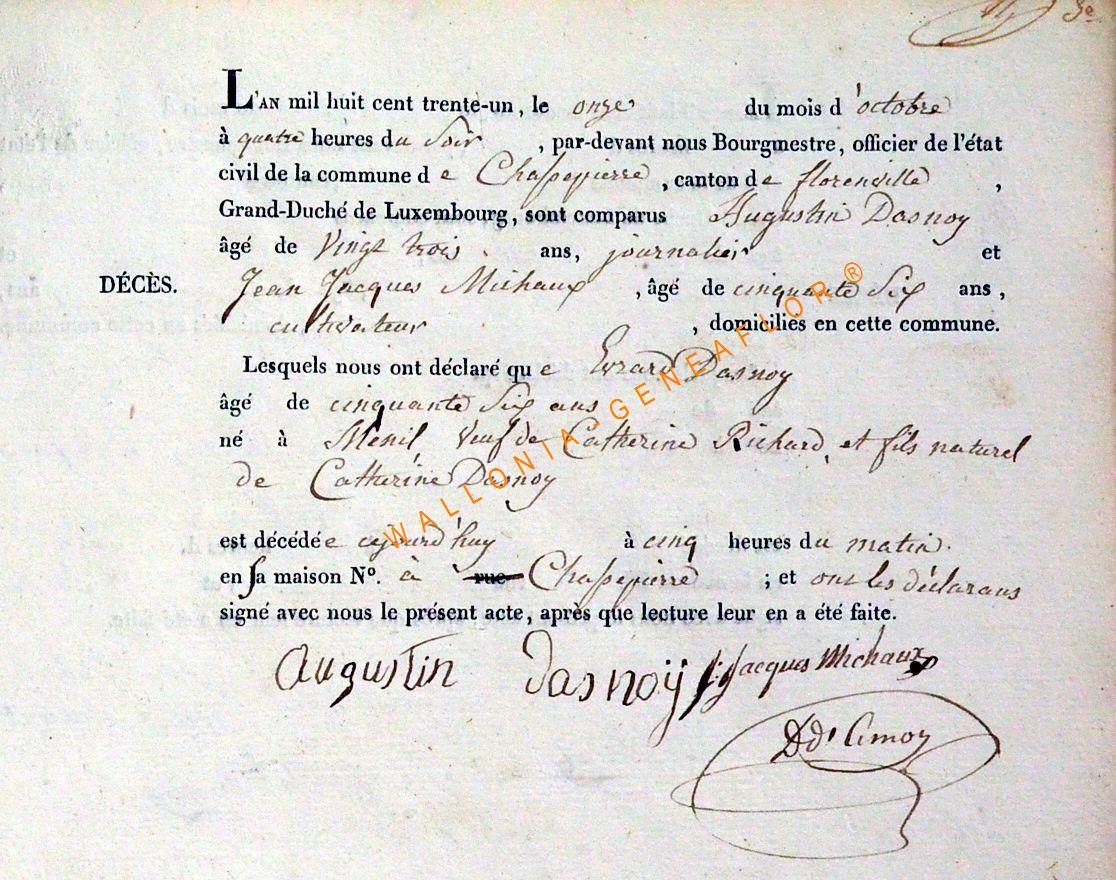 3e
L'AN mil huit cent trente-un, le onze du mois d'octobre
à quatre heures du Soir, par-devant nous Bourgmestre, officier de l'état
civil de la commune de Chassepierre, canton de florenville,
Grand-Duché de Luxembourg, sont comparus Augustin Dasnoy
âgé de Vingt trois ans, journalier et
DÉCÈS.
Jean Jacques Michaux, âgé de cinquante Six ans,
cultivateur, domiciliés en cette commune.
Lesquels nous ont déclaré que Evrard Dasnoy
âgé de cinquante Six ans
né à Menil, Veuf de Catherine Richard, et fils naturel
de Catherine Dasnoy
est décédé cejourd'huy à cinq heures du matin.
en sa maison N°. à rue Chassepierre ; et ont les déclarans
signé avec nous le présent acte, après que lecture leur en a été faite.
Augustin Dasnoÿ Jacques Michaux
WALLONIA GENEAFLOR ®